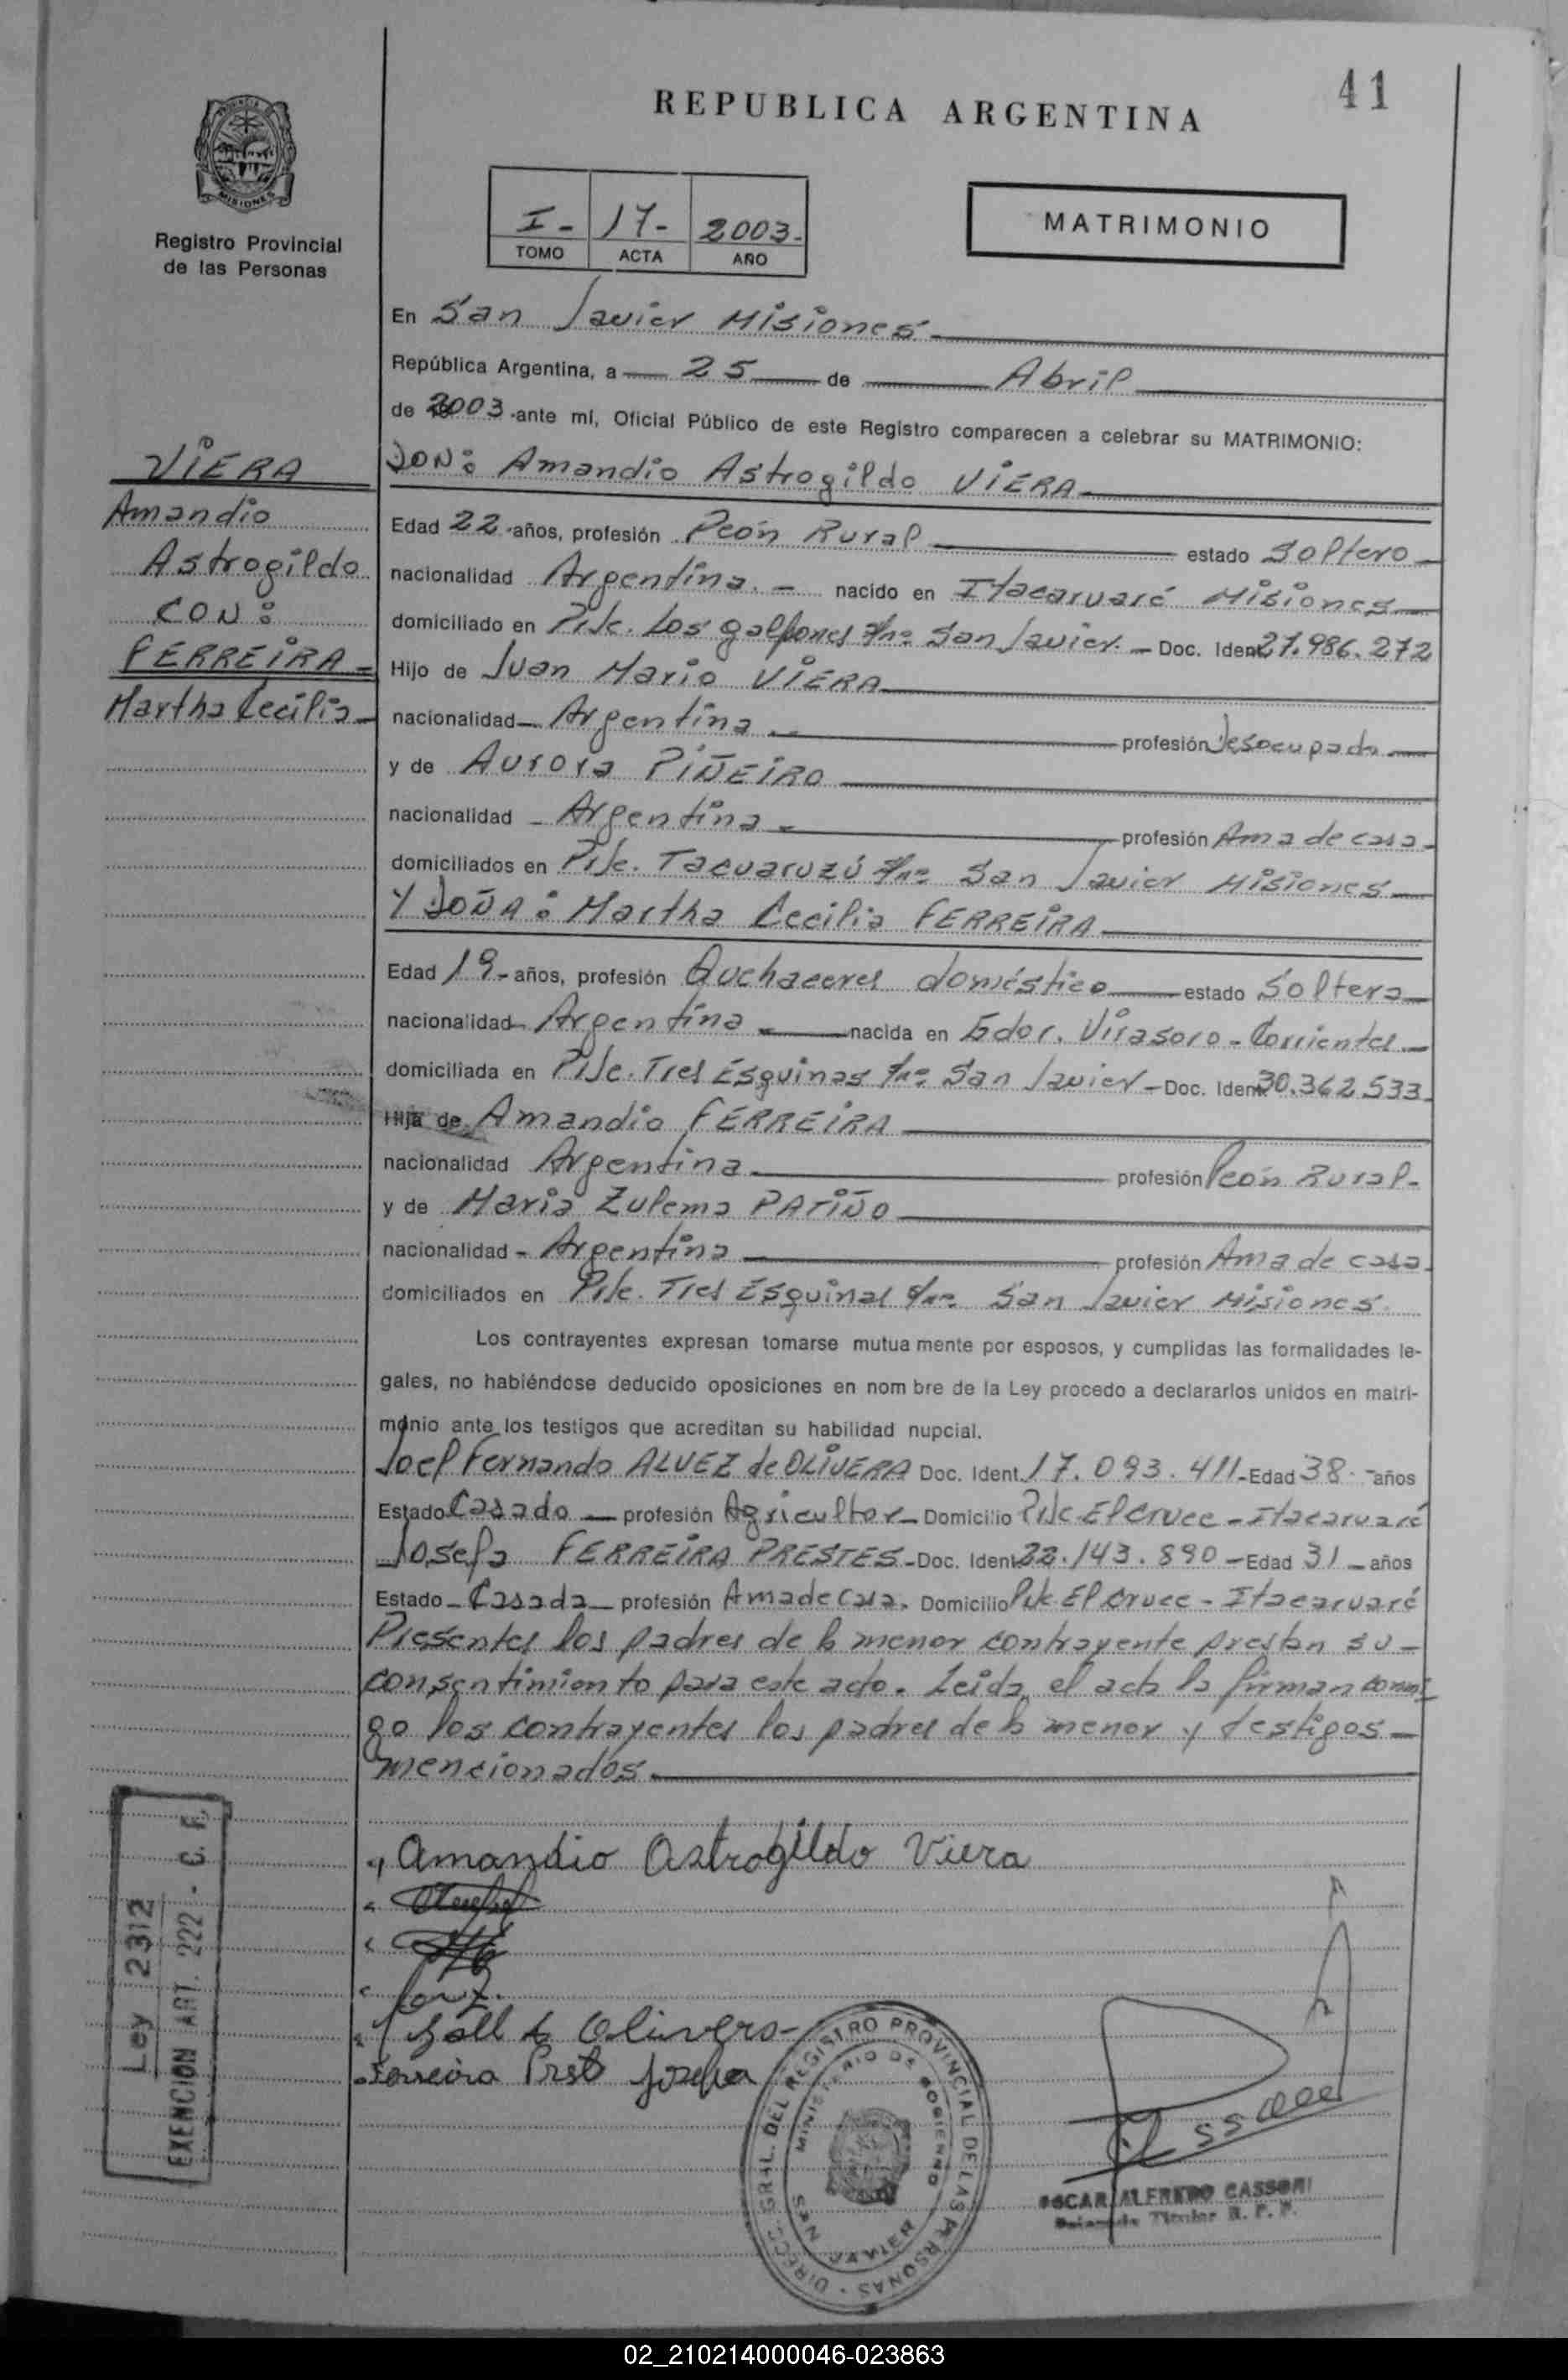 41
REPUBLICA ARGENTINA
MISIONES
Registro Provincial
de las Personas
I- 17- 2003-
TOMO ACTA AÑO
MATRIMONIO
En San Javier Misiones
República Argentina, a 25 de Abril
de 2003 ante mí, Oficial Público de este Registro comparecen a celebrar su MATRIMONIO:
VIERA
Amandio
Astrogildo
CON:
FERREIRA
Martha Cecilia
DON: Amandio Astrogildo VIERA
Edad 22 años, profesión Peón Rural estado Soltero
nacionalidad Argentina.- nacido en Itacaruaré Misiones
domiciliado en Pje. Los galpones San Javier.- Doc. Ident. 27.986.272
Hijo de Juan Mario VIERA
nacionalidad Argentina profesión Desocupado
y de Aurora PIÑEIRO
nacionalidad - Argentina - profesión Ama de casa -
domiciliados en Pje. Tacuaruzú San Javier Misiones
Y DOÑA: Martha Cecilia FERREIRA
Edad 19- años, profesión Quehaceres doméstico estado Soltera
nacionalidad Argentina - nacida en Gdor. Virasoro - Corrientes
domiciliada en Pje. Tres Esquinas San Javier - Doc. Ident. 30.362.533
Hija de Amandio FERREIRA
nacionalidad Argentina profesión Peón Rural-
y de Maria Zulema PATIÑO
nacionalidad - Argentina profesión Ama de casa.
domiciliados en Pje. Tres Esquinas San Javier Misiones.
Los contrayentes expresan tomarse mutua mente por esposos, y cumplidas las formalidades le-
gales, no habiéndose deducido oposiciones en nom bre de la Ley procedo a declararlos unidos en matri-
monio ante los testigos que acreditan su habilidad nupcial.
Joel Fernando ALVEZ de OLIVERA Doc. Ident. 17.093.411- Edad 38- años
Estado Casado profesión Agricultor - Domicilio Pje El Cruce - Itacaruaré
Josefa FERREIRA PRESTES - Doc. Ident. 22.143.890 - Edad 31 años
Estado - Casada profesión Ama de Casa. Domicilio Pje El Cruce - Itacaruaré
Presentes los padres de la menor contrayente prestan su
consentimiento para este acto. Leida el acta la firman conmi
go los contrayentes los padres de la menor y testigos
mencionados.
Ley 2312
EXENCION ART. 222 - C. F.
Amandio Astrogildo Viera
Joell de Olivera
Ferreira Prest Josefa
DIRECC. GRAL. DEL REGISTRO PROVINCIAL DE LAS PERSONAS
MINISTERIO DE GOBIERNO
SAN JAVIER
OSCAR ALFREDO CASSONI
Delegado Titular R. P. P.
02_210214000046-023863